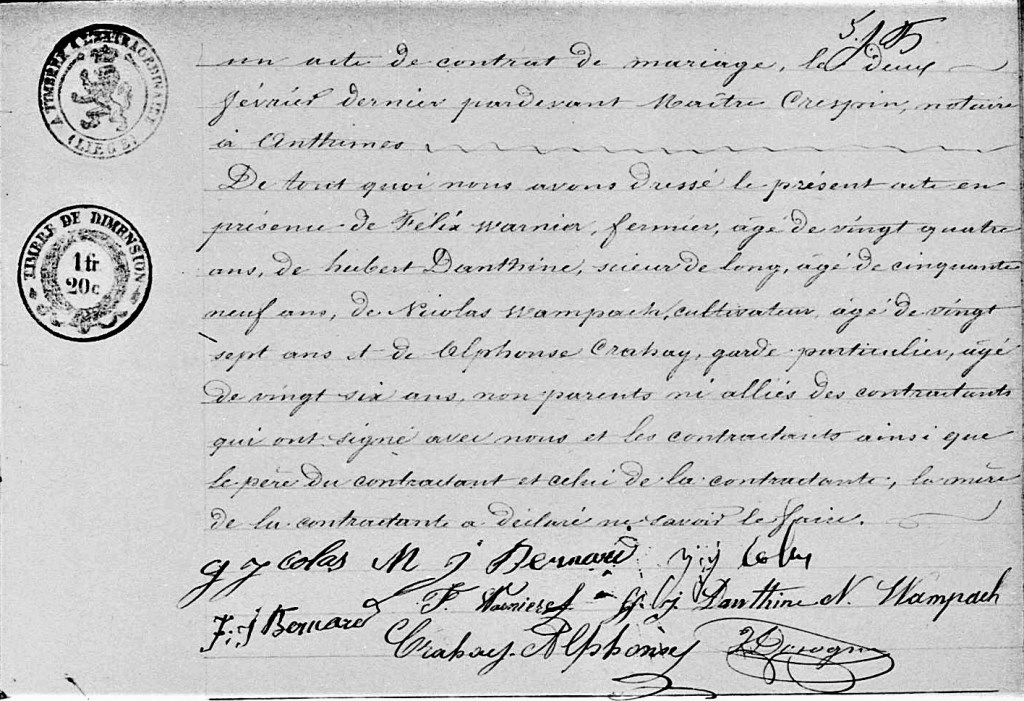 A TIMBRER A L'EXTRAORDINAIRE
(LIEGE)
TIMBRE DE DIMENSION
1 fr
20 c
un acte de contrat de mariage, le deux
février dernier pardevant Maître Crespin, notaire
à Anthisnes
De tout quoi nous avons dressé le présent acte en
présence de Félix Warnier, fermier, âgé de vingt quatre
ans, de hubert Danthine, scieur de long, âgé de cinquante
neuf ans, de Nicolas Wampach, cultivateur, âgé de vingt
sept ans et de Alphonse Crahay, garde particulier, âgé
de vingt six ans, non parents ni alliés des contractants
qui ont signé avec nous et les contractants ainsi que
le père du contractant et celui de la contractante, la mère
de la contractante a déclaré ne savoir le faire.
colas M J Bernard
J. J Bernard F. Warnier h. j Danthine N. Wampach
Crahay Alphonse